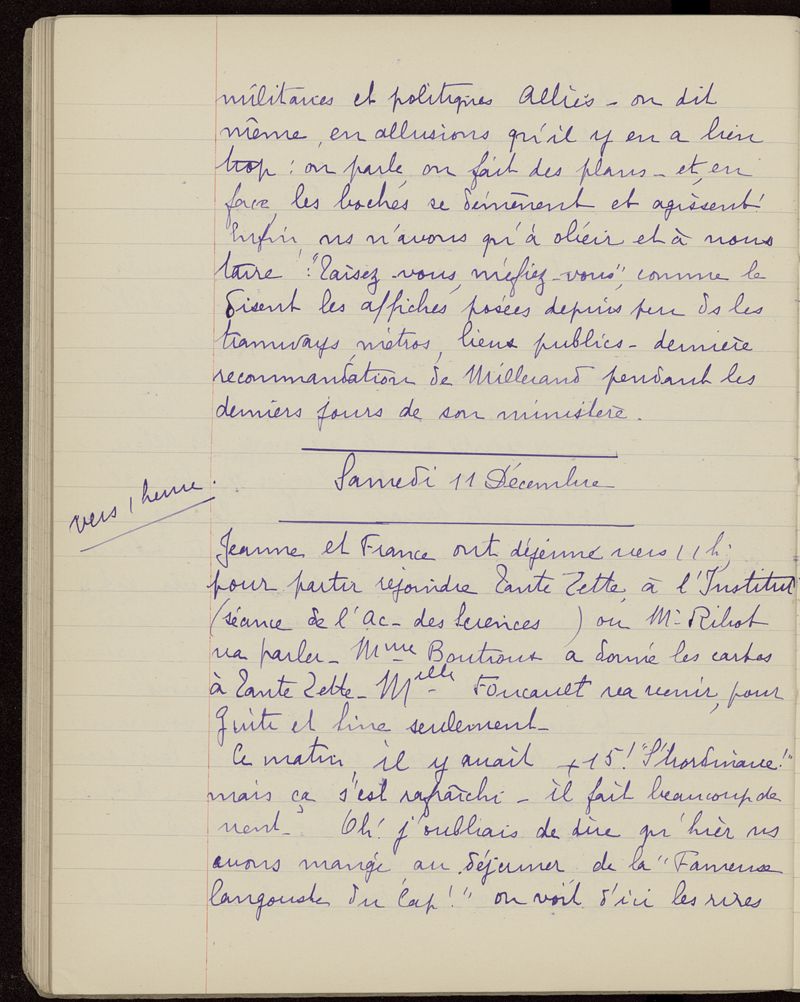 militaires et politiques Alliés - on dit
même, en allusions qu'il y en a bien
trop : on parle, on fait des plans - et, en
face, les boches se démènent et agissent !
Enfin, ns n'avons qu'à obéir et à nous
taire ! "Taisez-vous, méfiez-vous", comme le
disent les affiches posées depuis peu ds les
tramways, métros, lieux publics - dernière
recommandation de Millerand pendant les
derniers jours de son ministère.
Samedi 11 Décembre
vers 1 heure.
Jeanne et France ont déjeuné vers 11h;
pour partir rejoindre Tante Zette, à l'Institut
(séance de l'Ac- des Sciences ) où Mr Ribot
va parler - Mme Boutroux a donné les cartes
à Tante Zette - Melle Foucault va venir, pour
Guite et Line seulement -
Ce matin il y avait +15! "S'traordinaire!"
mais ça s'est rafraîchi - il fait beaucoup de
vent - Oh! j'oubliais de dire qu'hier ns
avons mangé au déjeuner de la "Fameuse
langouste du Cap!" on voit d'ici les rires